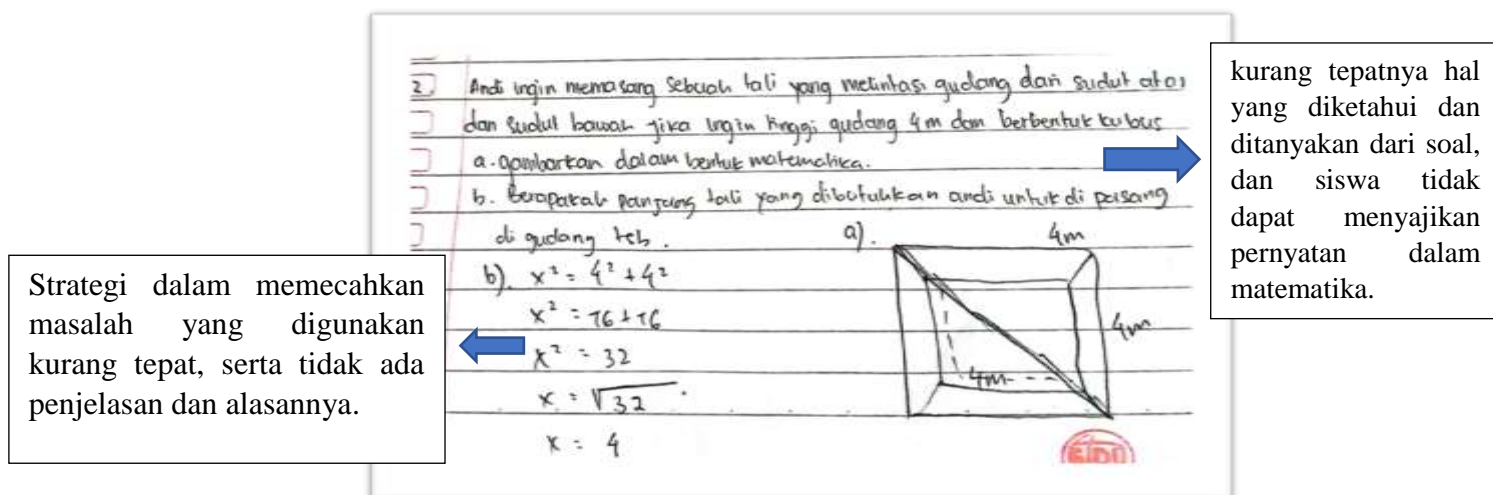 2) Andi ingin memasang sebuah tali yang melintasi gudang dari sudut atas
dan sudut bawah jika ingin tinggi gudang 4 m dan berbentuk kubus
a. gambarkan dalam bentuk matematika.
b. Berapakah panjang tali yang dibutuhkan andi untuk di pasang
di gudang tsb.
a).
4m
4m
4m
b). x² = 4² + 4²
x² = 16 + 16
x² = 32
x = √32
x = 4
kurang tepatnya hal
yang diketahui dan
ditanyakan dari soal,
dan siswa tidak
dapat menyajikan
pernyatan dalam
matematika.
Strategi dalam memecahkan
masalah yang digunakan
kurang tepat, serta tidak ada
penjelasan dan alasannya.